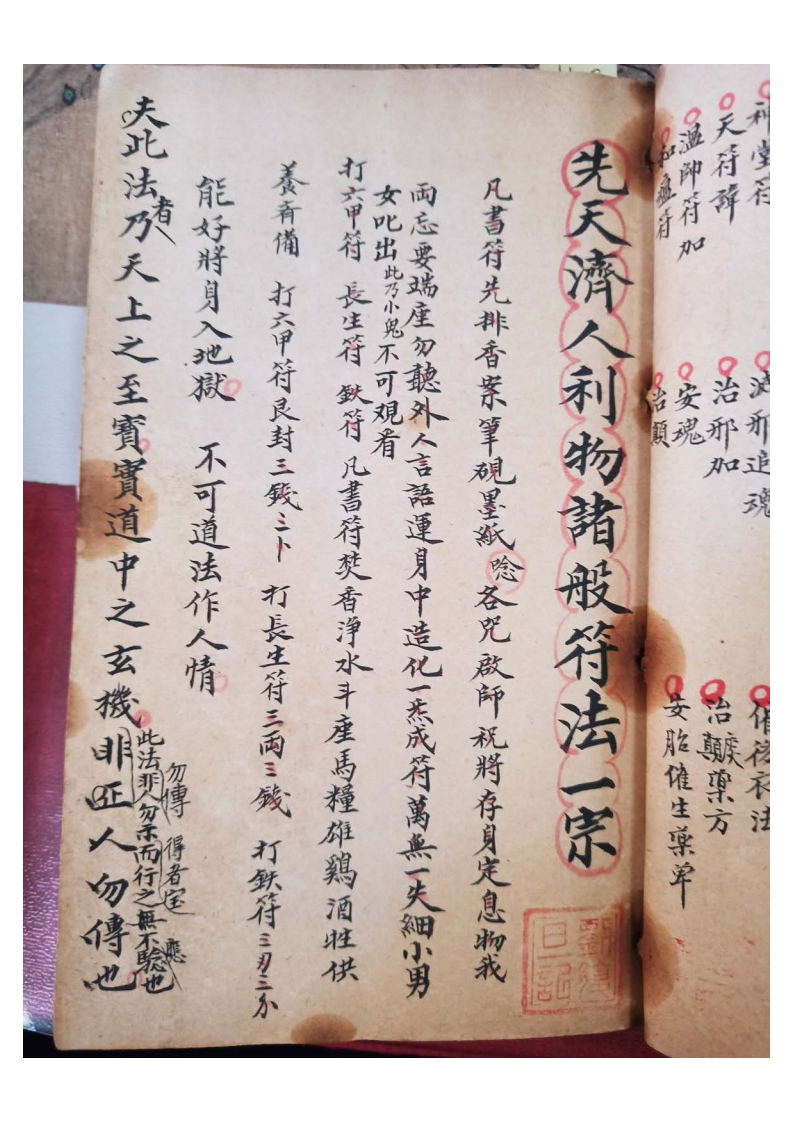 神堂符
天符諱
溫師符加
和瘟符
滅邪追魂
治邪加
安魂
治顛
催後衣法
治顛疾藥方
安胎催生藥單
先天濟人利物諸般符法一宗
凡書符先排香案筆硯墨紙唸各咒啟師祝將存身定息物我
兩忘要端座勿聽外人言語運身中造化一炁成符萬無一失細小男
女叱出此乃小鬼不可观看
打六甲符 長生符 鉄符 凡書符焚香淨水斗座馬糧雄鷄酒牲供
養斉備 打六甲符艮封三錢三卜 打長生符三両三錢 打鉄符三刃三分
能好將身入地獄 不可道法作人情
夫此法者乃天上之至寶實道中之玄機非正人勿傳也
勿傳 得者宝應
此法非人勿示而行之無不驗也